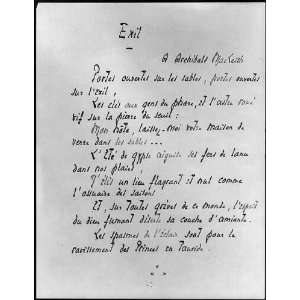 Exil
A Archibald MacLeish
Portes ouvertes sur les sables, portes ouvertes
sur l'exil,
Les clés aux gens du phare, et l'astre roué
vif sur la pierre du seuil :
Mon hôte, laissez-moi votre maison de
verre dans les sables ...
L'Été de gypse aiguise ses fers de lance
dans nos plaies,
J'élis un lieu flagrant et nul comme
l'ossuaire des saisons,
Et, sur toutes grèves de ce monde, l'esprit
du dieu fumant déserte sa couche d'amiante.
Les spasmes de l'éclair sont pour le
ravissement des Princes en Tauride.